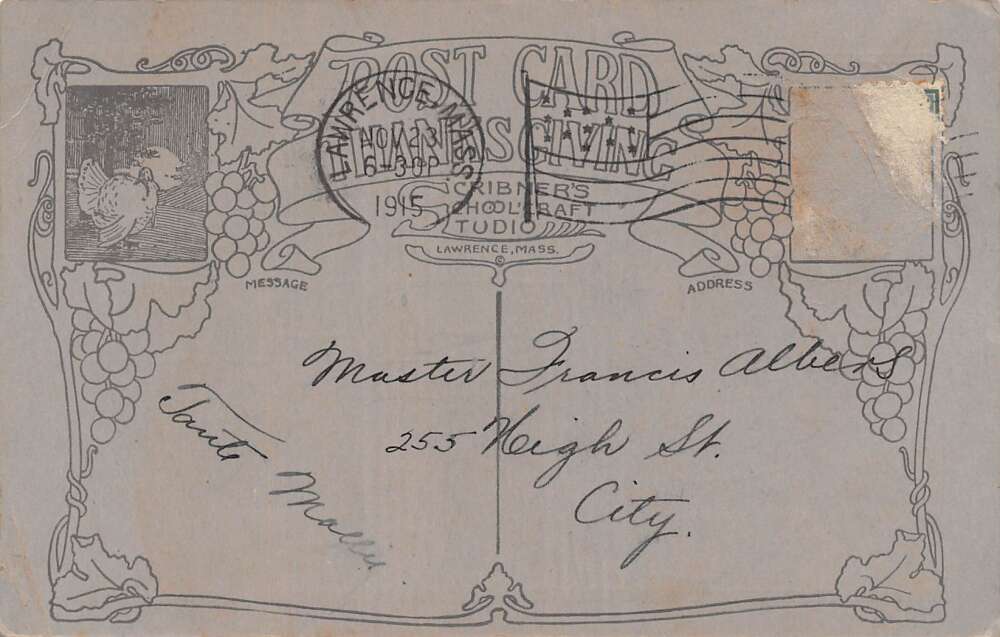 POST CARD
THANKSGIVING
LAWRENCE, MASS
NOV 23
6-30P
1915
SCRIBNER'S
SCHOOL CRAFT
STUDIO
LAWRENCE, MASS.
©
MESSAGE
ADDRESS
Master Francis Albers
255 High St.
City.
Tante
Mallie